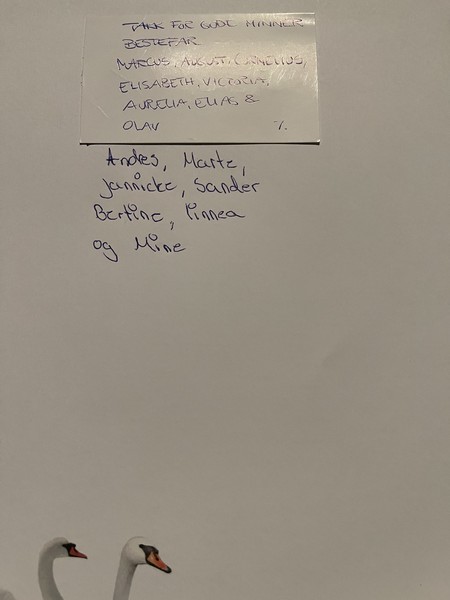 TAKK FOR GODE MINNER
BESTEFAR
MARCUS, AUGUST, CORNELIUS,
ELISABETH, VICTORIA,
AURELIA, ELIAS &
OLAV ./.
Andres, Marte,
Jannicke, Sander
Bertine, linnea
og Mine